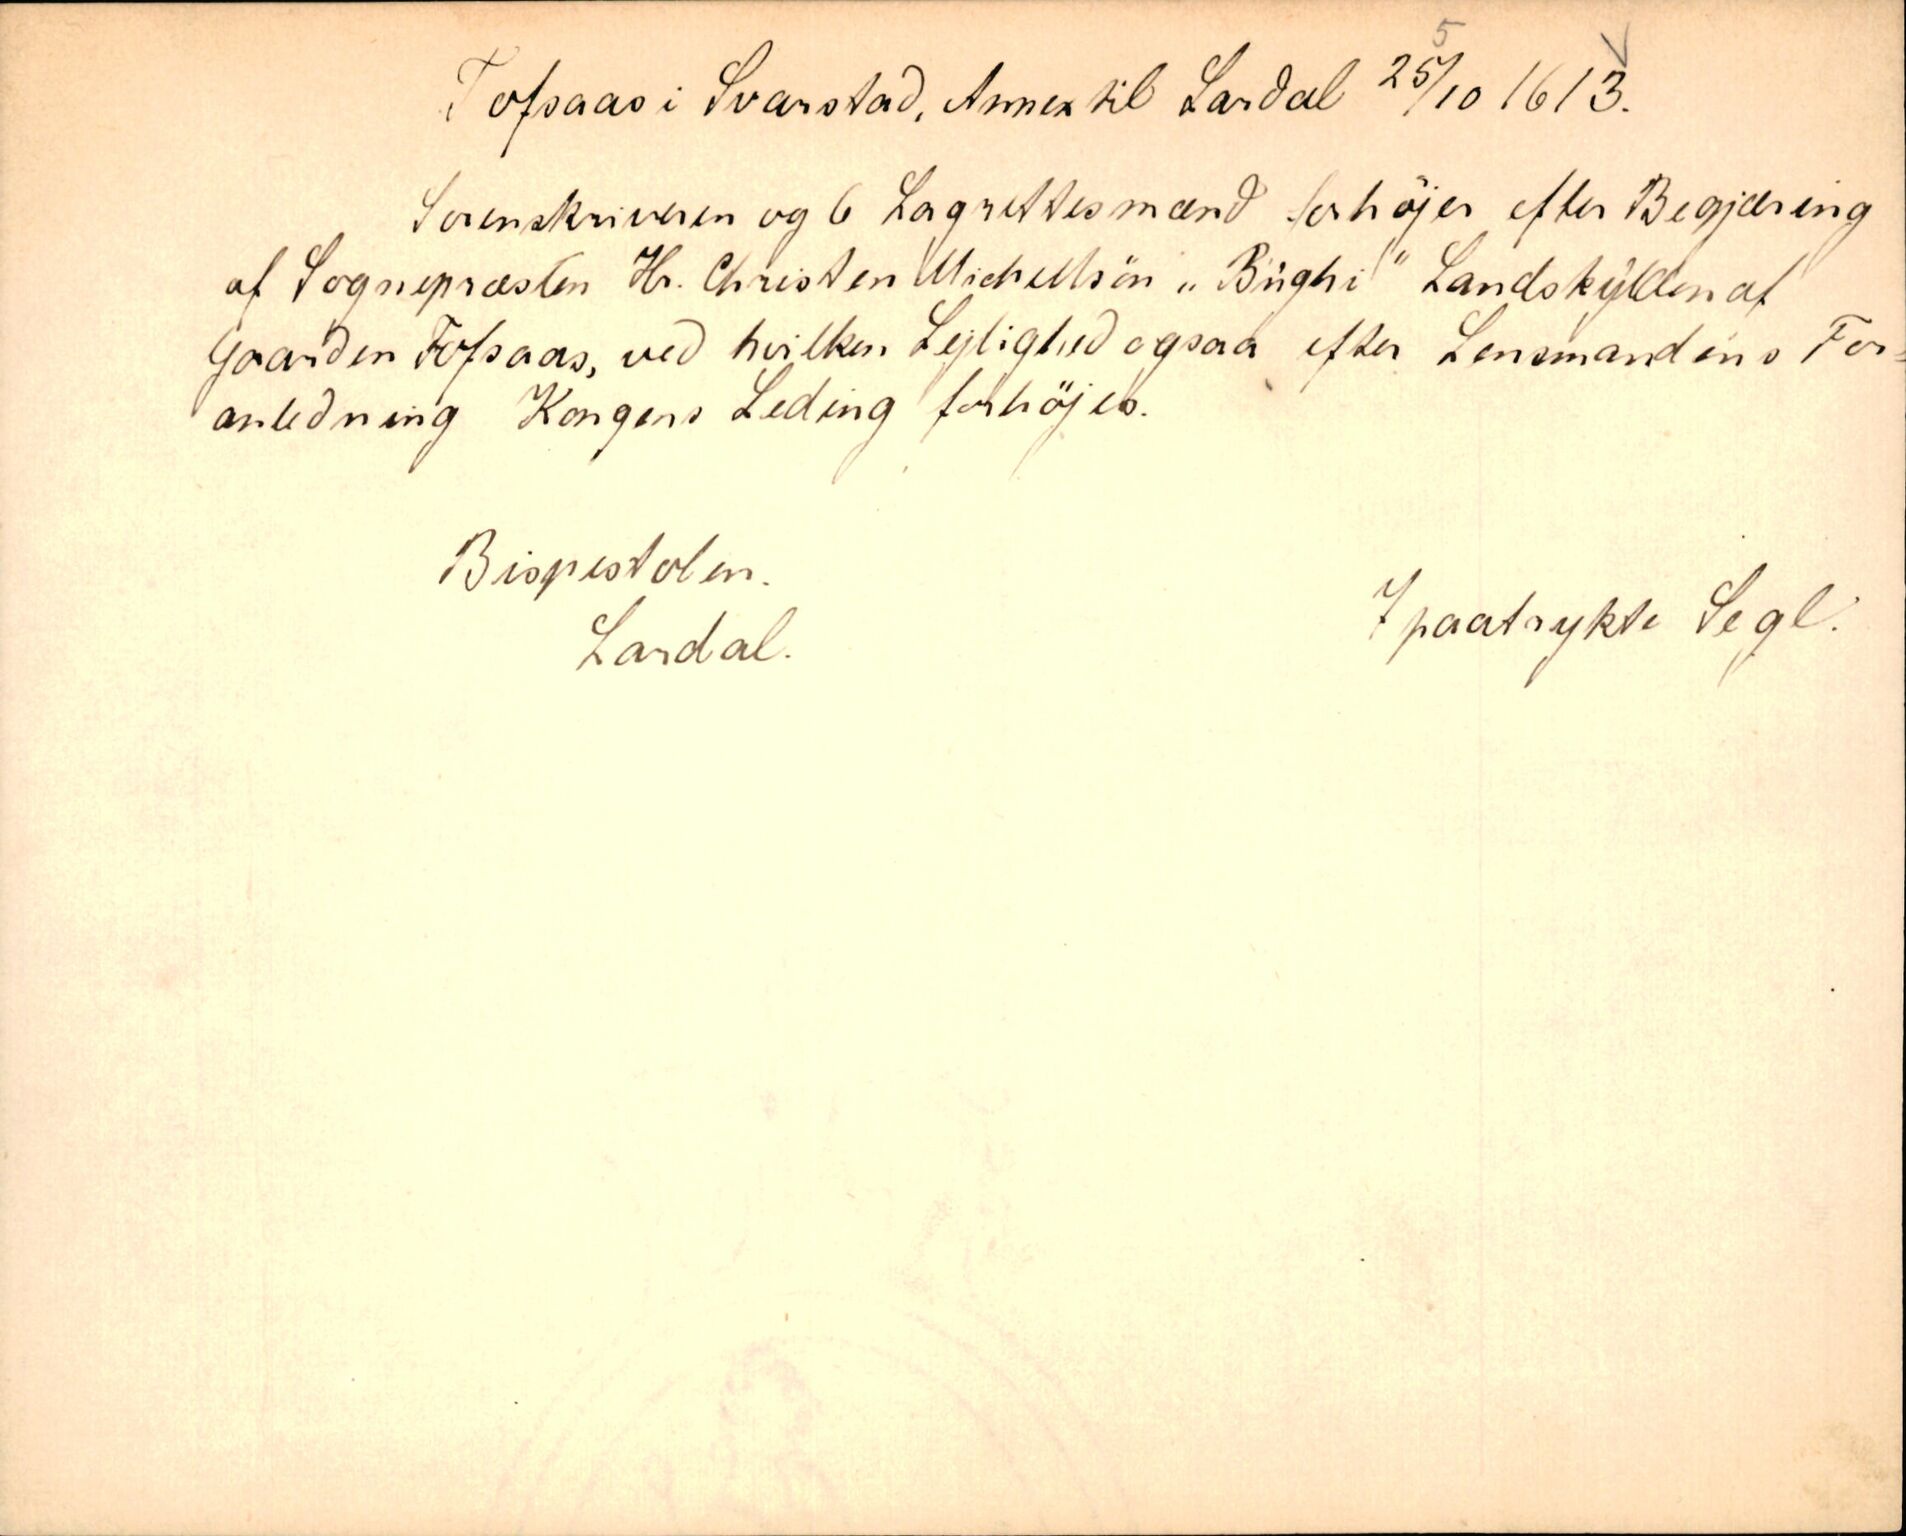 Tofsaas i Svarstad, Annex til Lardal 25/10 1613.
5
Sorenskriveren og 6 Lagrettesmænd forhöjer efter Begjæring
af Sognepræsten Hr. Christen Michellsön „Büghi" Landskylden af
Gaarden Tofsaas, ved hvilken Lejlighed ogsaa efter Lensmandens For=
anledning Kongens Leding forhöjes.
Bispestolen.
Lardal.
7 paatrykte Segl.